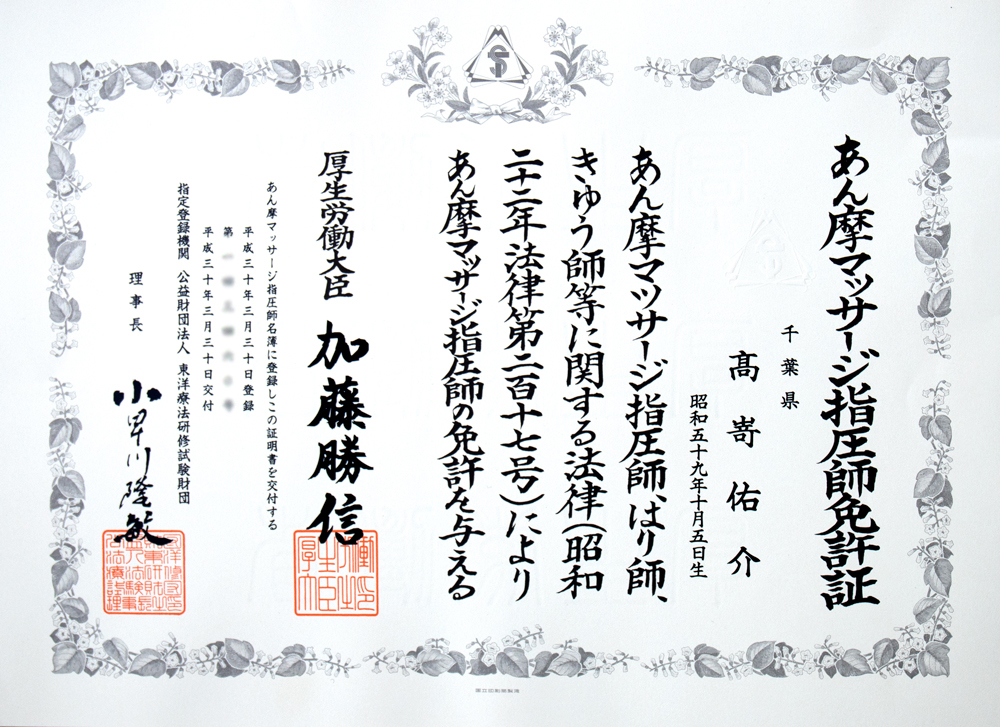 あん摩マッサージ指圧師免許証
千葉県
髙嵜佑介
昭和五十九年十月五日生
あん摩マッサージ指圧師、はり師、
きゆう師等に関する法律（昭和
二十二年法律第二百十七号）により
あん摩マッサージ指圧師の免許を与える
厚生労働大臣 加藤勝信
あん摩マッサージ指圧師名簿に登録しこの証明書を交付する
平成三十年三月三十日登録
第 号
平成三十年三月三十日交付
指定登録機関 公益財団法人 東洋療法研修試験財団
理事長 小早川隆敏